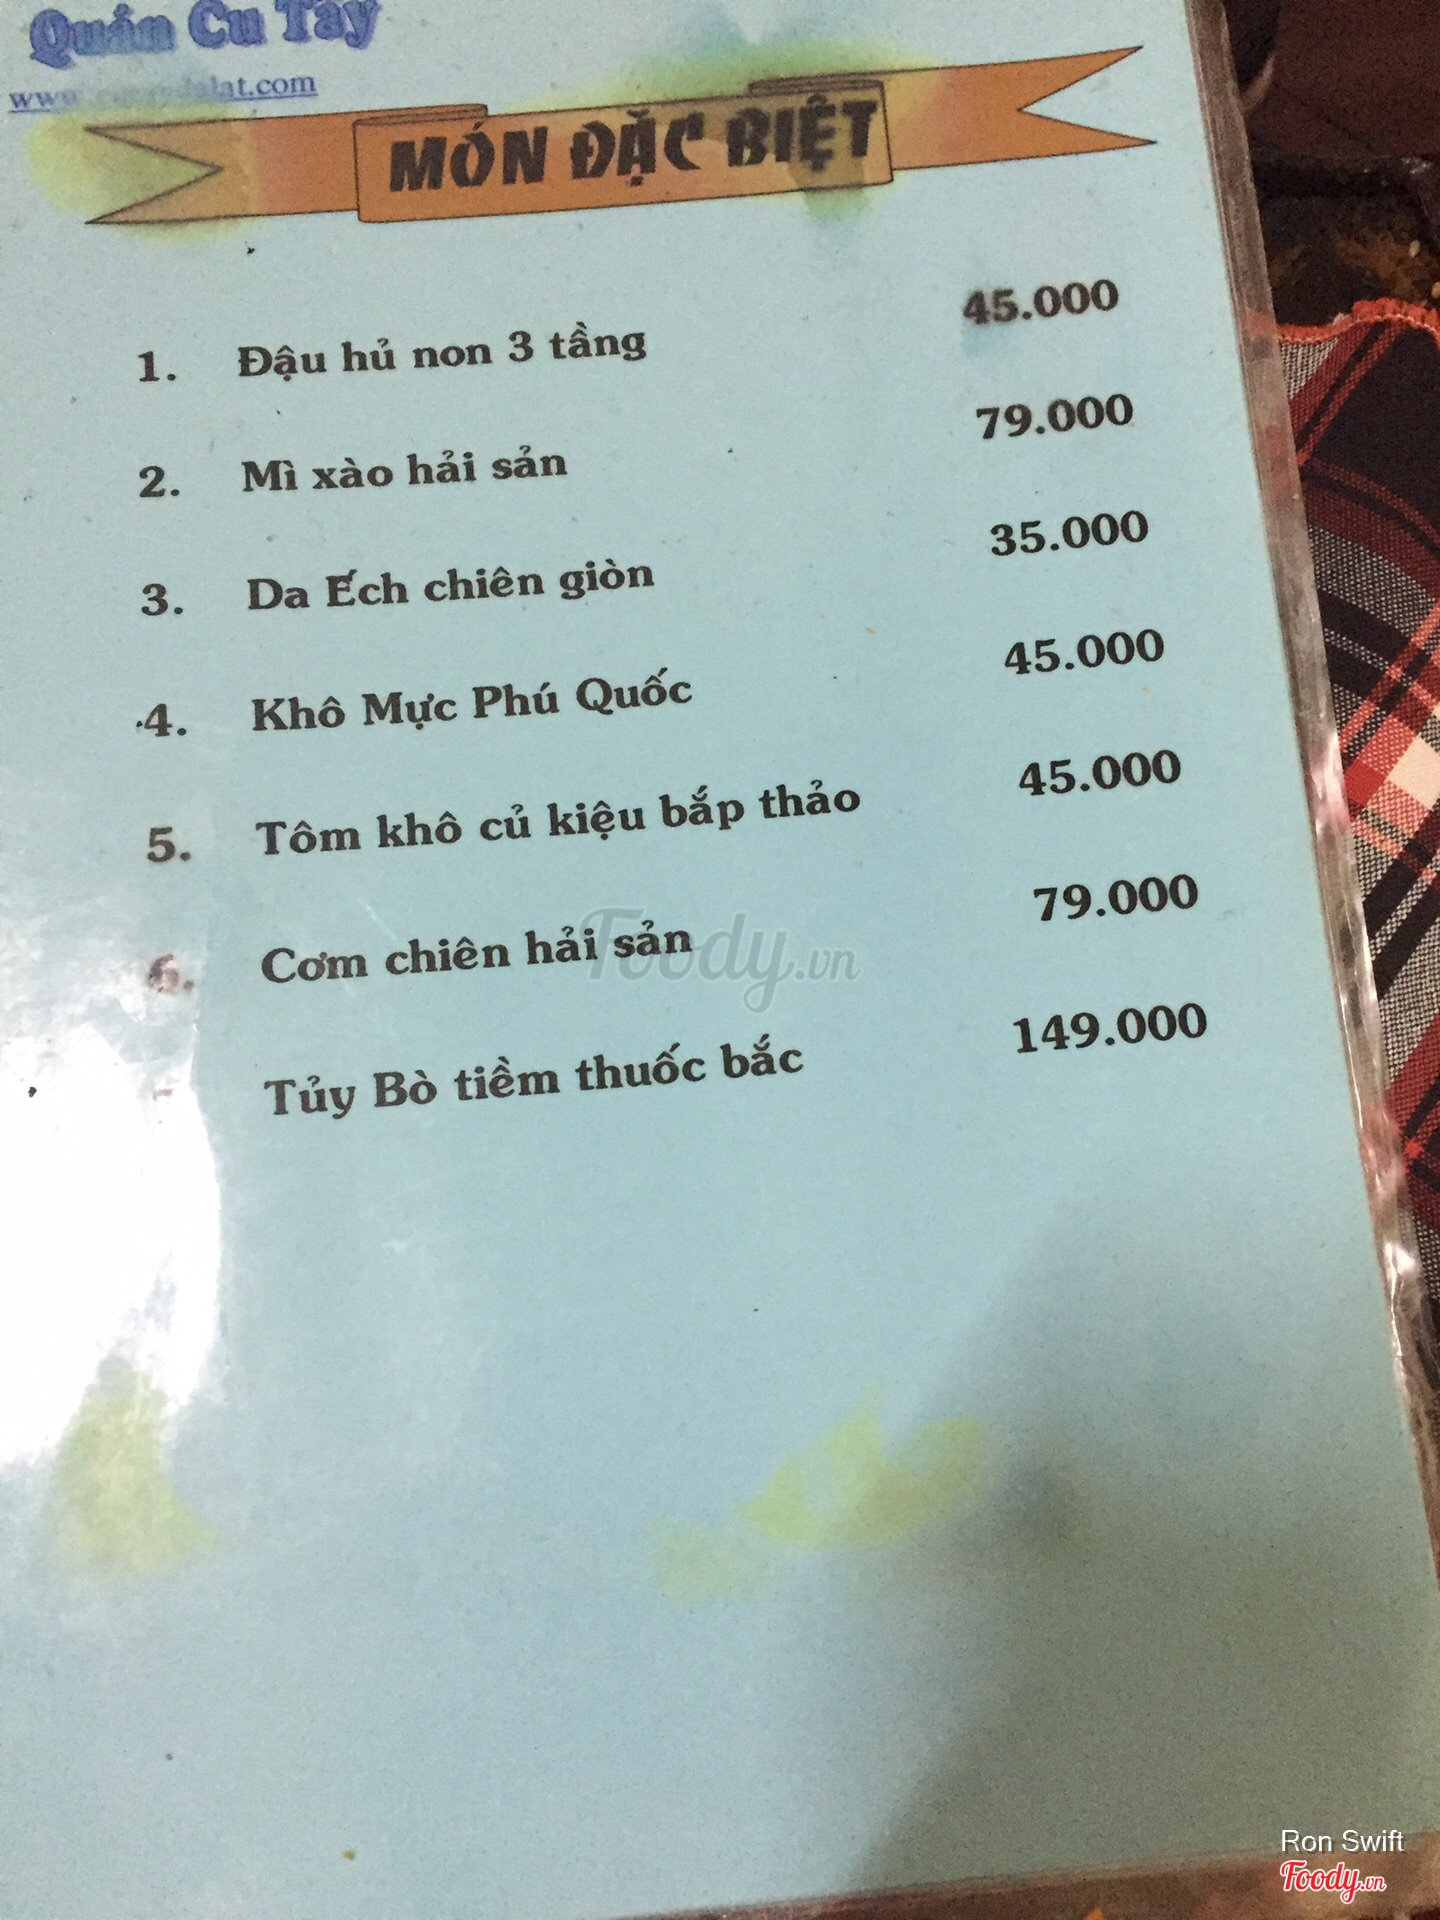 Quán Cu Tây
MÓN ĐẶC BIỆT
1. Đậu hủ non 3 tầng 45.000
2. Mì xào hải sản 79.000
3. Da Ếch chiên giòn 35.000
4. Khô Mực Phú Quốc 45.000
5. Tôm khô củ kiệu bắp thảo 45.000
6. Cơm chiên hải sản 79.000
Tủy Bò tiềm thuốc bắc 149.000
Foody.vn
Ron Swift
Foody.vn